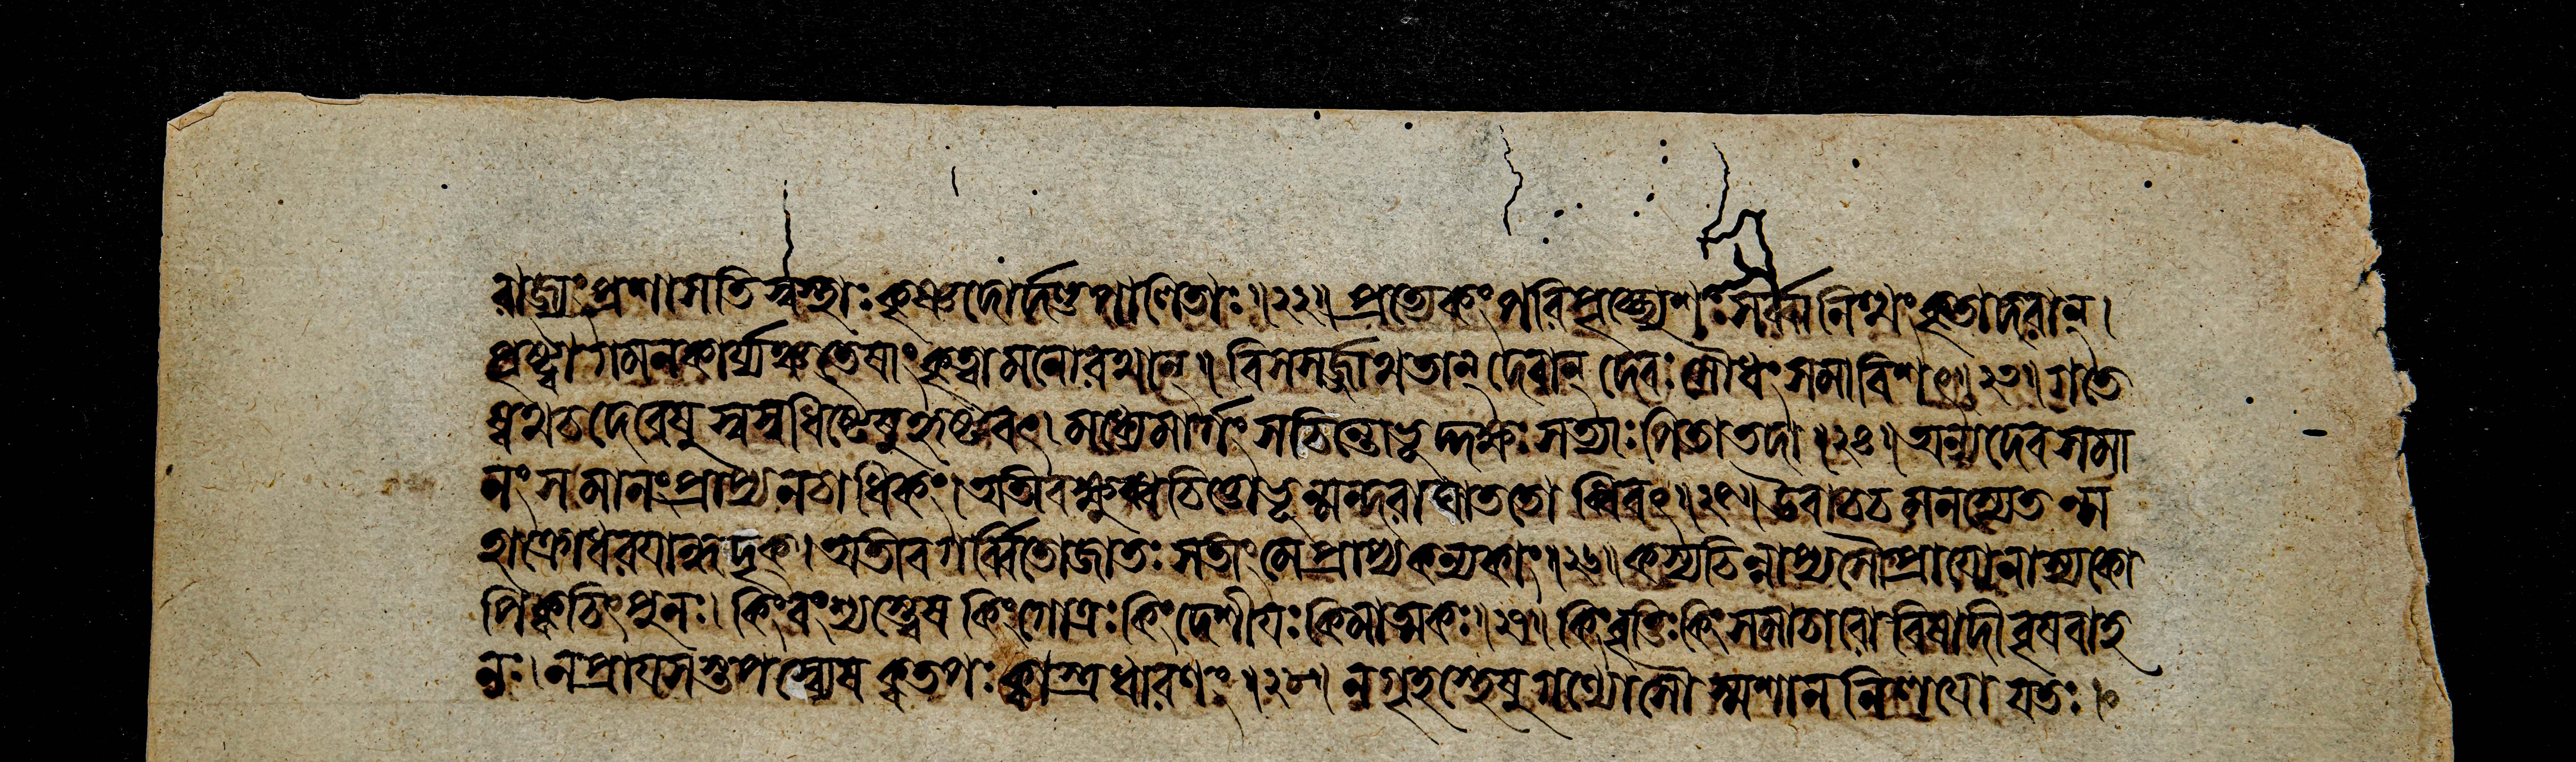 রাজ্যং প্রশাসতি স্বস্থাঃ কৃষ্ণদোর্দণ্ডপালিতাঃ॥২২॥ প্রত্যেকং পরিপৃচ্ছ্যেশঃ সর্ব্বানিত্থং কৃতাদরান্।
পৃষ্ট্বা গমনকার্য্যঞ্চ তেষাং কৃত্বা মনোরথান্॥ বিসসর্জ্জাথ তান্ দেবান্ দেবঃ সৌধং সমাবিশৎ॥২৩॥ গতে
ষ্বথ চ দেবেষু স্বস্বধিষ্ণ্যেষু হৃষ্টবৎ। মধ্যেমার্গং স চিন্তোভূদ্দক্ষঃ সত্যাঃ পিতা তদা॥২৪॥ অন্যদেবসমা
নং স মানং প্রাপ্য ন চাধিকং। অতীব ক্ষুব্ধচিত্তোভূন্মন্দরাঘাততোব্ধিবৎ॥২৫॥ উবাচ চ মনস্যেতন্ম
হাক্রোধরয়ান্ধদৃক্। অতীব গর্ব্বিতো জাতঃ সতীং মে প্রাপ্য কন্যকাং॥২৬॥ কস্যচিন্নাপ্যসৌ প্রায়ো নাস্য কো
পি ক্বচিৎ পুনঃ। কিংবংশ্যস্ত্বেষ কিংগোত্রঃ কিংদেশীয়ঃ কিমাত্মকঃ॥২৭॥ কিংবৃত্তিঃ কিংসমাচারো বিষাদী বৃষবাহ
নঃ। ন প্রায়সস্তপস্ব্যেষ ক্ব তপঃ ক্বাস্ত্রধারণং॥২৮॥ ন গৃহস্থেষু গণ্যোসৌ শ্মশাননিলয়ো যতঃ।